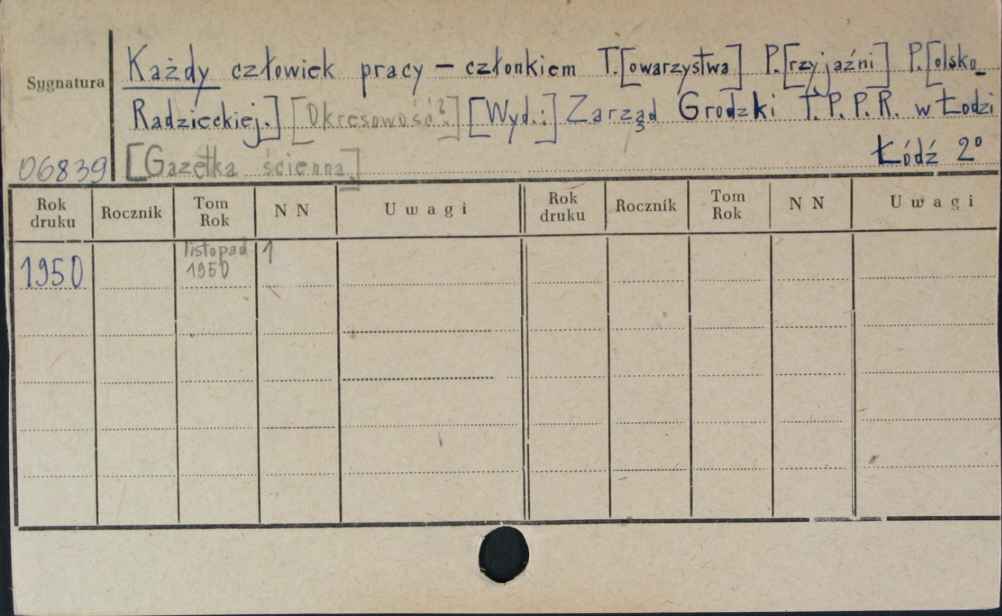 Sygnatura
Każdy człowiek pracy – członkiem T.[owarzystwa] P.[rzyjaźni] P.[olsko_
Radzieckiej.] [Okresowość?] [Wyd.:] Zarząd Grodzki T.P.P.R. w Łodzi
Łódź 2º
06839 [Gazetka ścienna]
Rok druku Rocznik Tom Rok N N Uwagi Rok druku Rocznik Tom Rok N N Uwagi
1950 listopad 1950 1